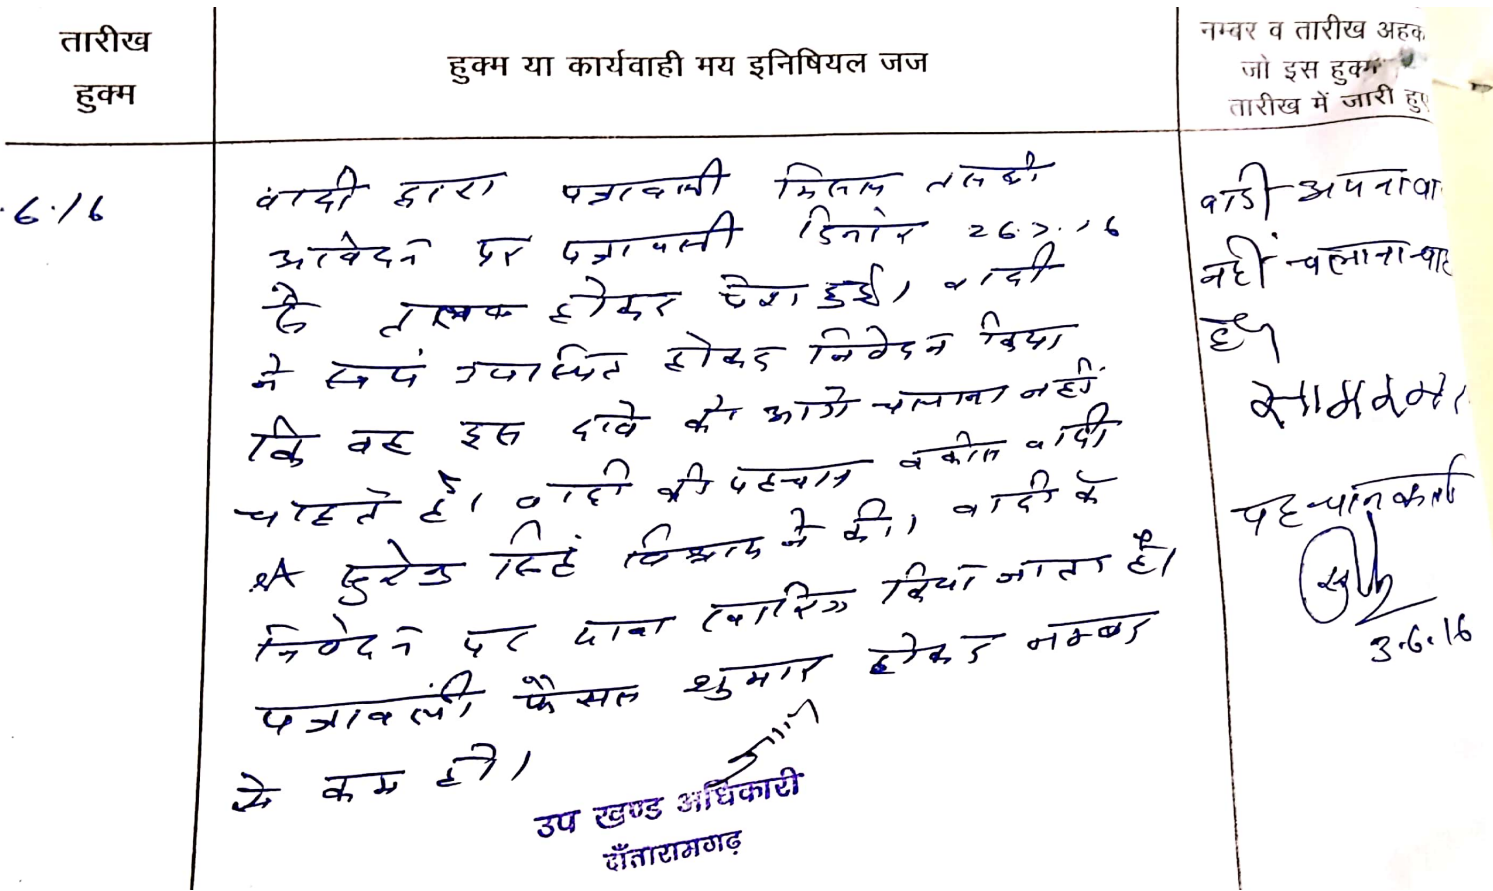 तारीख
हुक्म
हुक्म या कार्यवाही मय इनिषियल जज
नम्बर व तारीख अहक
जो इस हुक्म
तारीख में जारी हुए
.6.16
वादी द्वारा पत्रावली मिसल तलबी
आवेदन पर पत्रावली दिनांक 26.7.16
से तलब होकर पेश हुई। वादी
ने स्वयं उपस्थित होकर निवेदन किया
कि वह इस दावे को आगे चलाना नहीं
चाहते है। वादी की पहचान वकील वादी
सिहं ने की। वादी के
निवेदन पर दावा खारिज किया जाता है।
पत्रावली फैसल शुमार होकर नम्बर
से कम हो।
उप खण्ड अधिकारी
दाँतारामगढ़
वादी अपना वा
नहीं चलाना चाह
है।
पहचानकर्ता
3.6.16